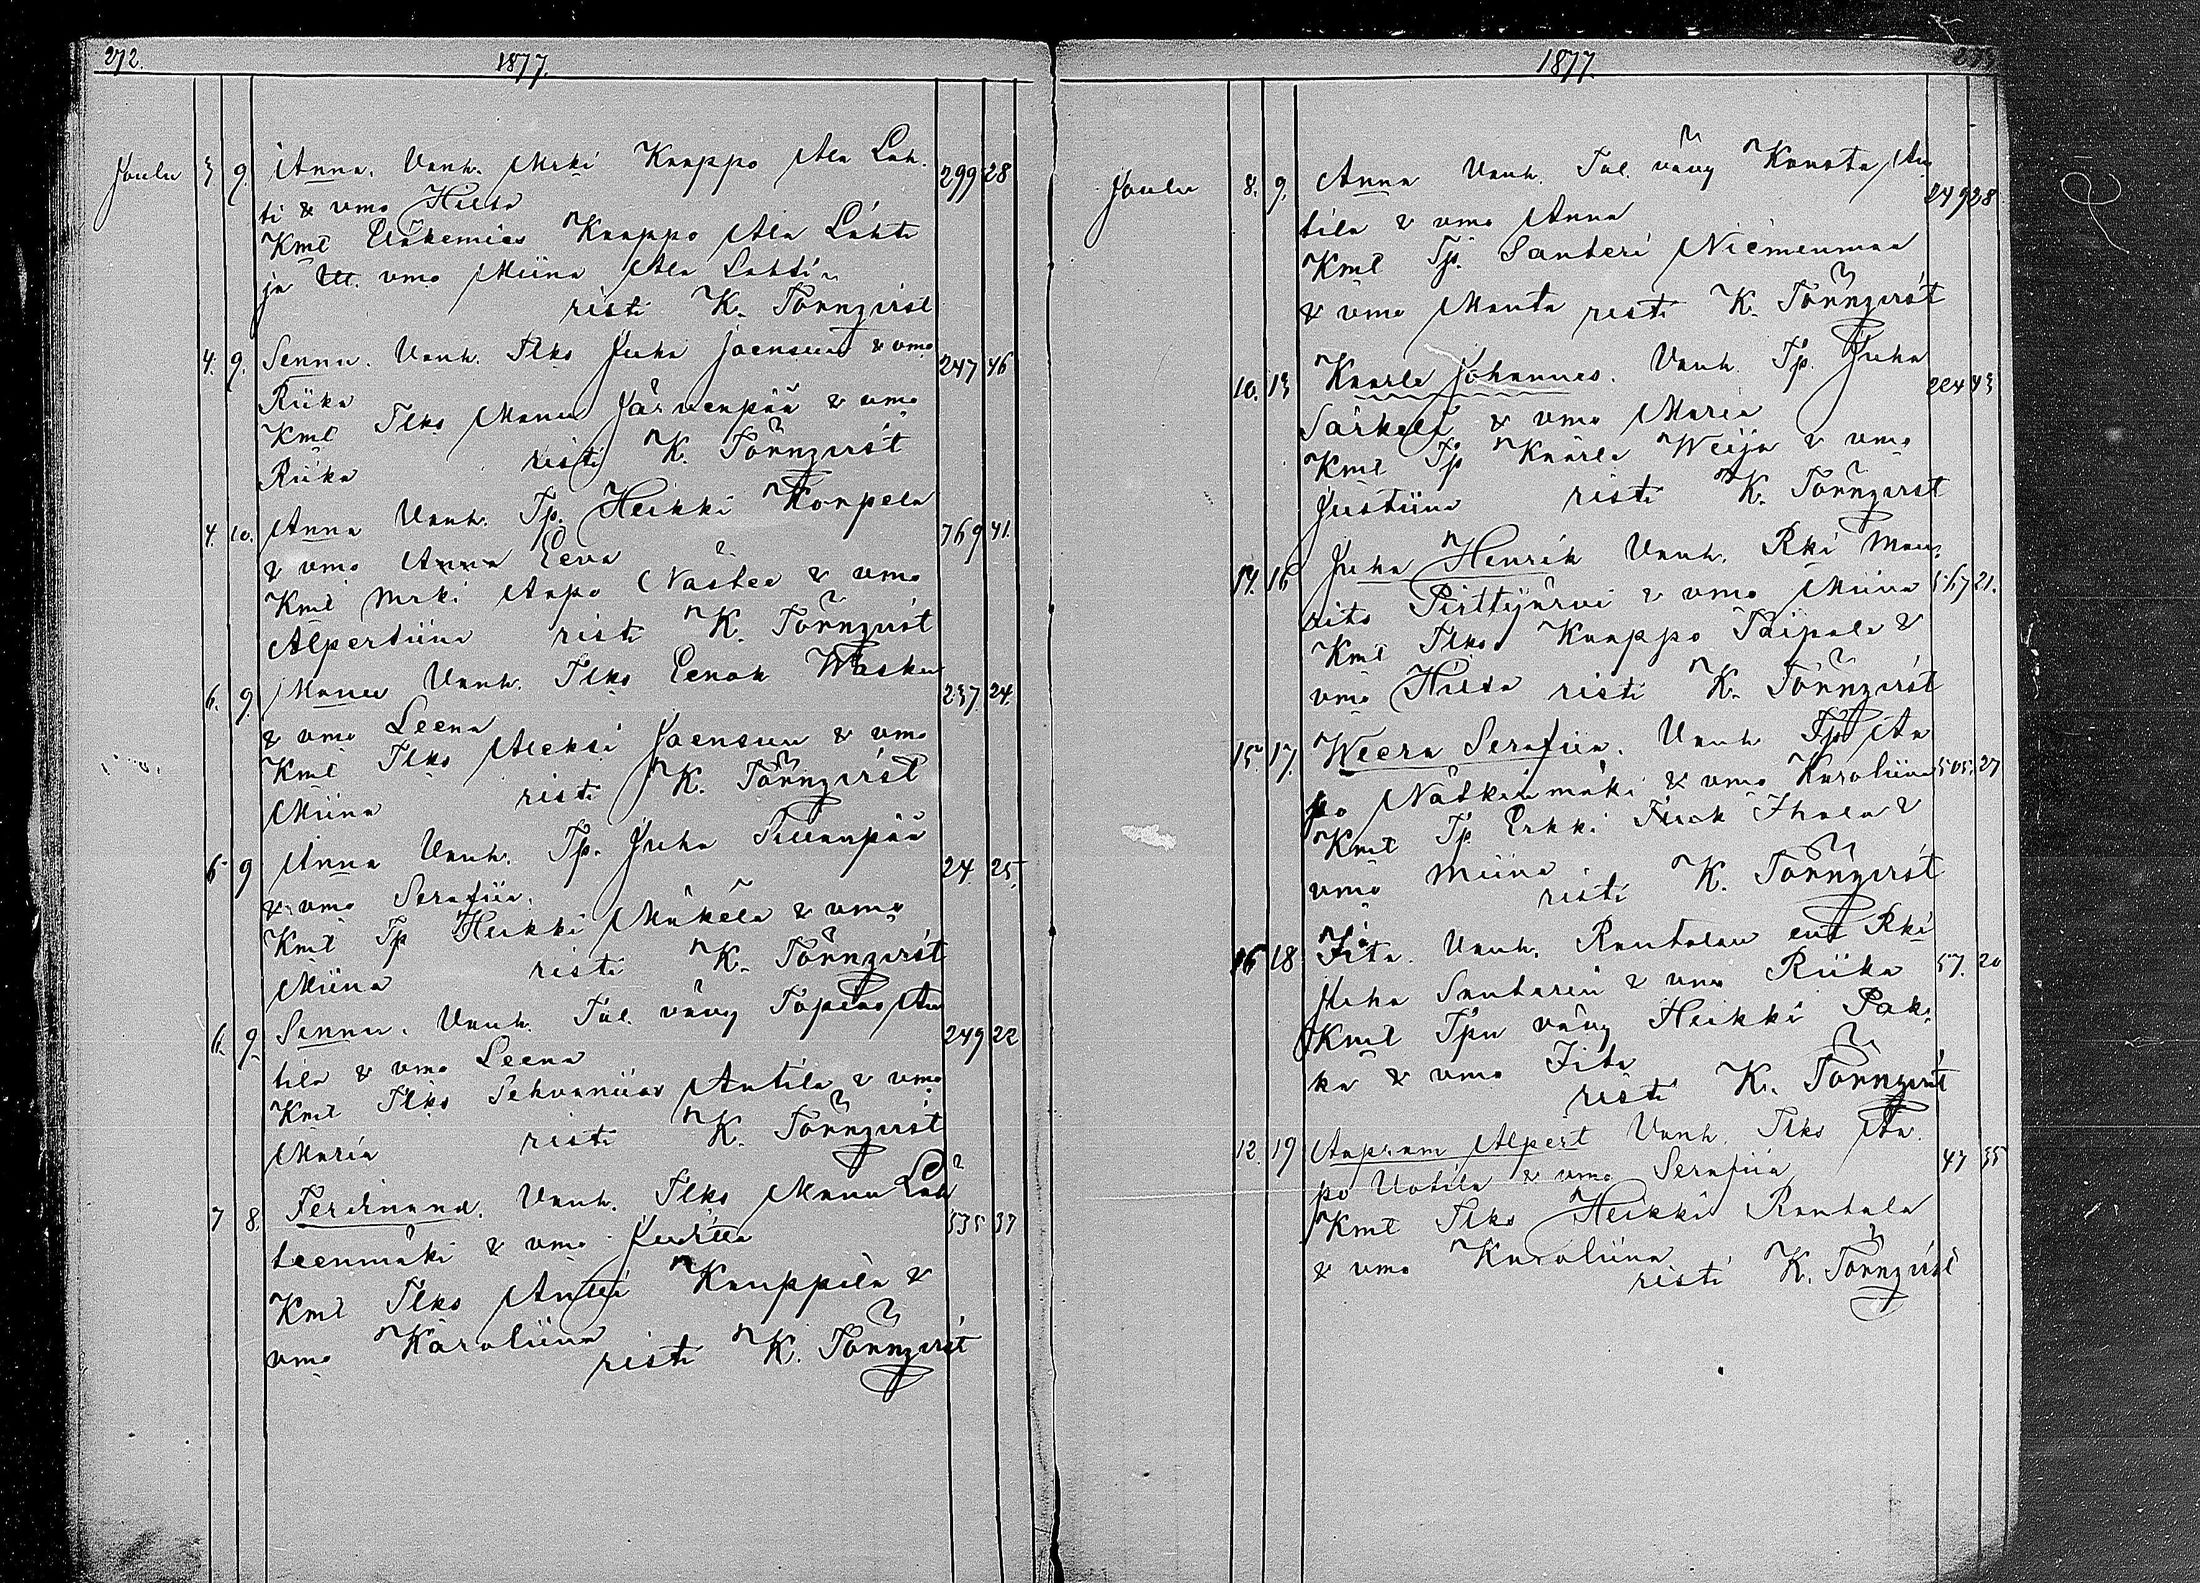 272.
1877.
Joulu 3 9. Anna. Vanh. Mrki Kaappo Ala Lah-
ti & vmo Hilda 299 28
Kml Eliakemias Kaappo Ala Lahti
ja vmo Miina Ala Lahti
risti K. Törnqvist
4. 9. Sennu. Vanh. Tlks Juha Joensuu & vmo 247 46
Riika
Kml Tlks Manu Järvenpää & vmo
Riika risti K. Törnqvist
4. 10. Anna Vanh. Tp. Heikki Korpela 769 41.
& vmo Anna Eeva
Kml Mrki Aapo & vmo
Alpertiina risti K. Törnqvist
6. 9. Manu Vanh. Tlks Eenok Wasku 237. 24.
& vmo Leena
Kml Tlks Aleksi Joensuu & vmo
Miina risti K. Törnqvist
6 9 Anna Vanh. Tp. Juha Sillanpää 24. 25.
& vmo Serafiia.
Kml Tp Heikki Mäkelä & vmo
Miina risti K. Törnqvist
6. 9. Sennu. Vanh. Tal. vävy Topias An 249 22
tila & vmo Leena
Kml Tlks Antila & vmo
Maria risti K. Törnqvist
7 8. Ferdinand. Vanh. Tlks Manu Läh 535 37
teenmäki & vmo
Kml Tlks Antti Kauppila &
vmo Karoliina risti K. Törnqvist
1877.
Joulu 8. 9. Anna Vanh. Tal. vävy Konsta An 249 28
tila & vmo Anna
Kml Tp. Santeri Niemenmaa
& vmo Manta risti K. Törnqvist
10. 13 Kaarle Johannes. Vanh. Tp. Juha 224 43
Särkelä & vmo Maria
Kml Tp Kaarle Weija & vmo
Justiina risti K. Törnqvist
14. 16 Juha Henrik Vanh. Rki Mau-
rits Pirttijärvi & vmo Miina 567 21.
Kml Tlks Kaappo Taipale &
vmo Hilda risti K. Törnqvist
15. 17. Weera Serafiia. Vanh Tp Aa
po Nätkinmäki & vmo Karoliina 505. 27
Kml Tp Erkki Ihala &
vmo Miina risti K. Törnqvist
16 18 Iita. Vanh. Rantalan ent Rki
Juha Santeri & vmo Riika 57. 20
Kml Tpn vävy Heikki Pak-
ka & vmo Iita
risti K. Törnqvist
12. 19 Aapram Alpert Vanh. Tlks Aa-
po Uotila & vmo Serafiia 47 35
Kml Tlks Heikki Rantala
& vmo Karoliina
risti K. Törnqvist